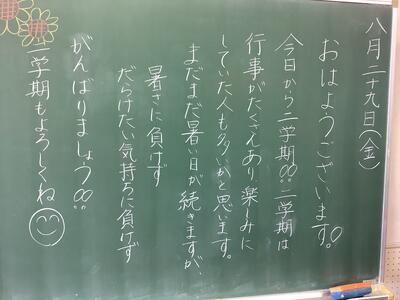 八月二十九日(金)
おはようございます!
今日から二学期!!二学期は
行事がたくさんあり楽しみに
していた人も多いかと思います。
まだまだ暑い日が続きますが、
暑さに負けず
だらけたい気持ちに負けず
がんばりましょう!!
二学期もよろしくね